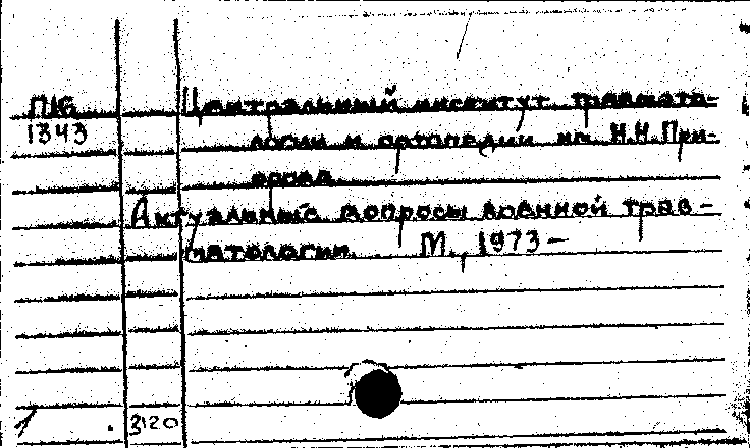 П16 Центральный институт травмато-
1343 логии и ортопедии им. Н.Н.При-
орова.
Актуальные вопросы военной трав-
матологии. М., 1973-
3120